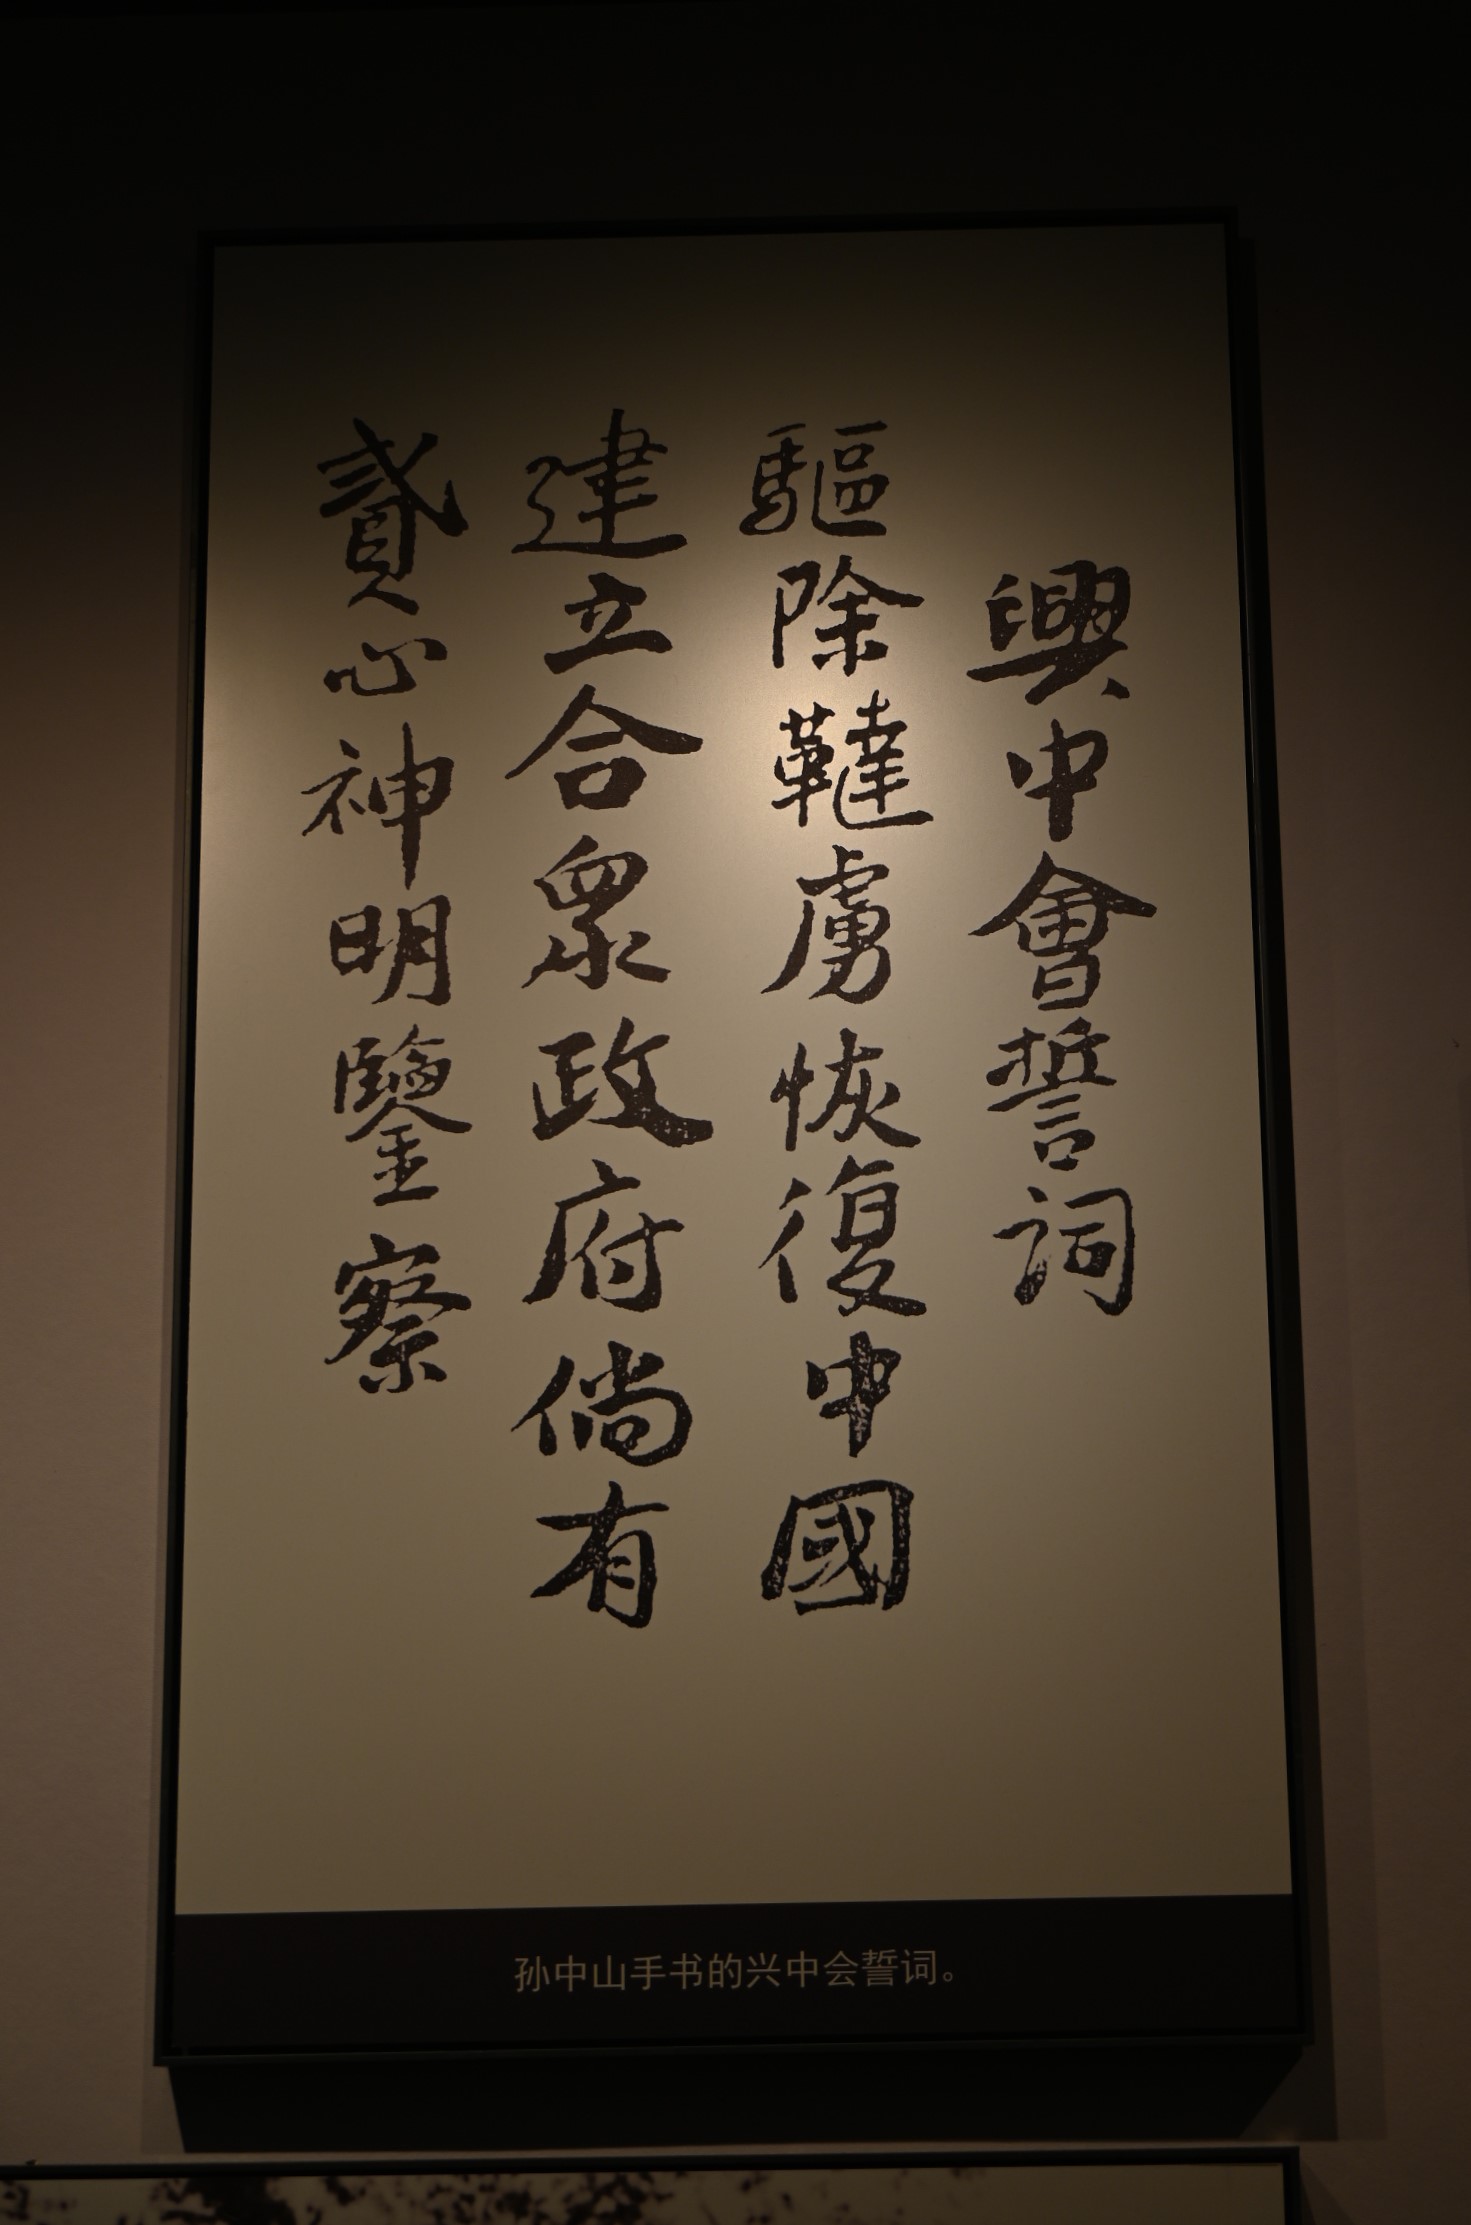 興中會誓詞
驅除韃虜恢復中國
建立合衆政府倘有
貳心神明鑒察
孙中山手书的兴中会誓词。